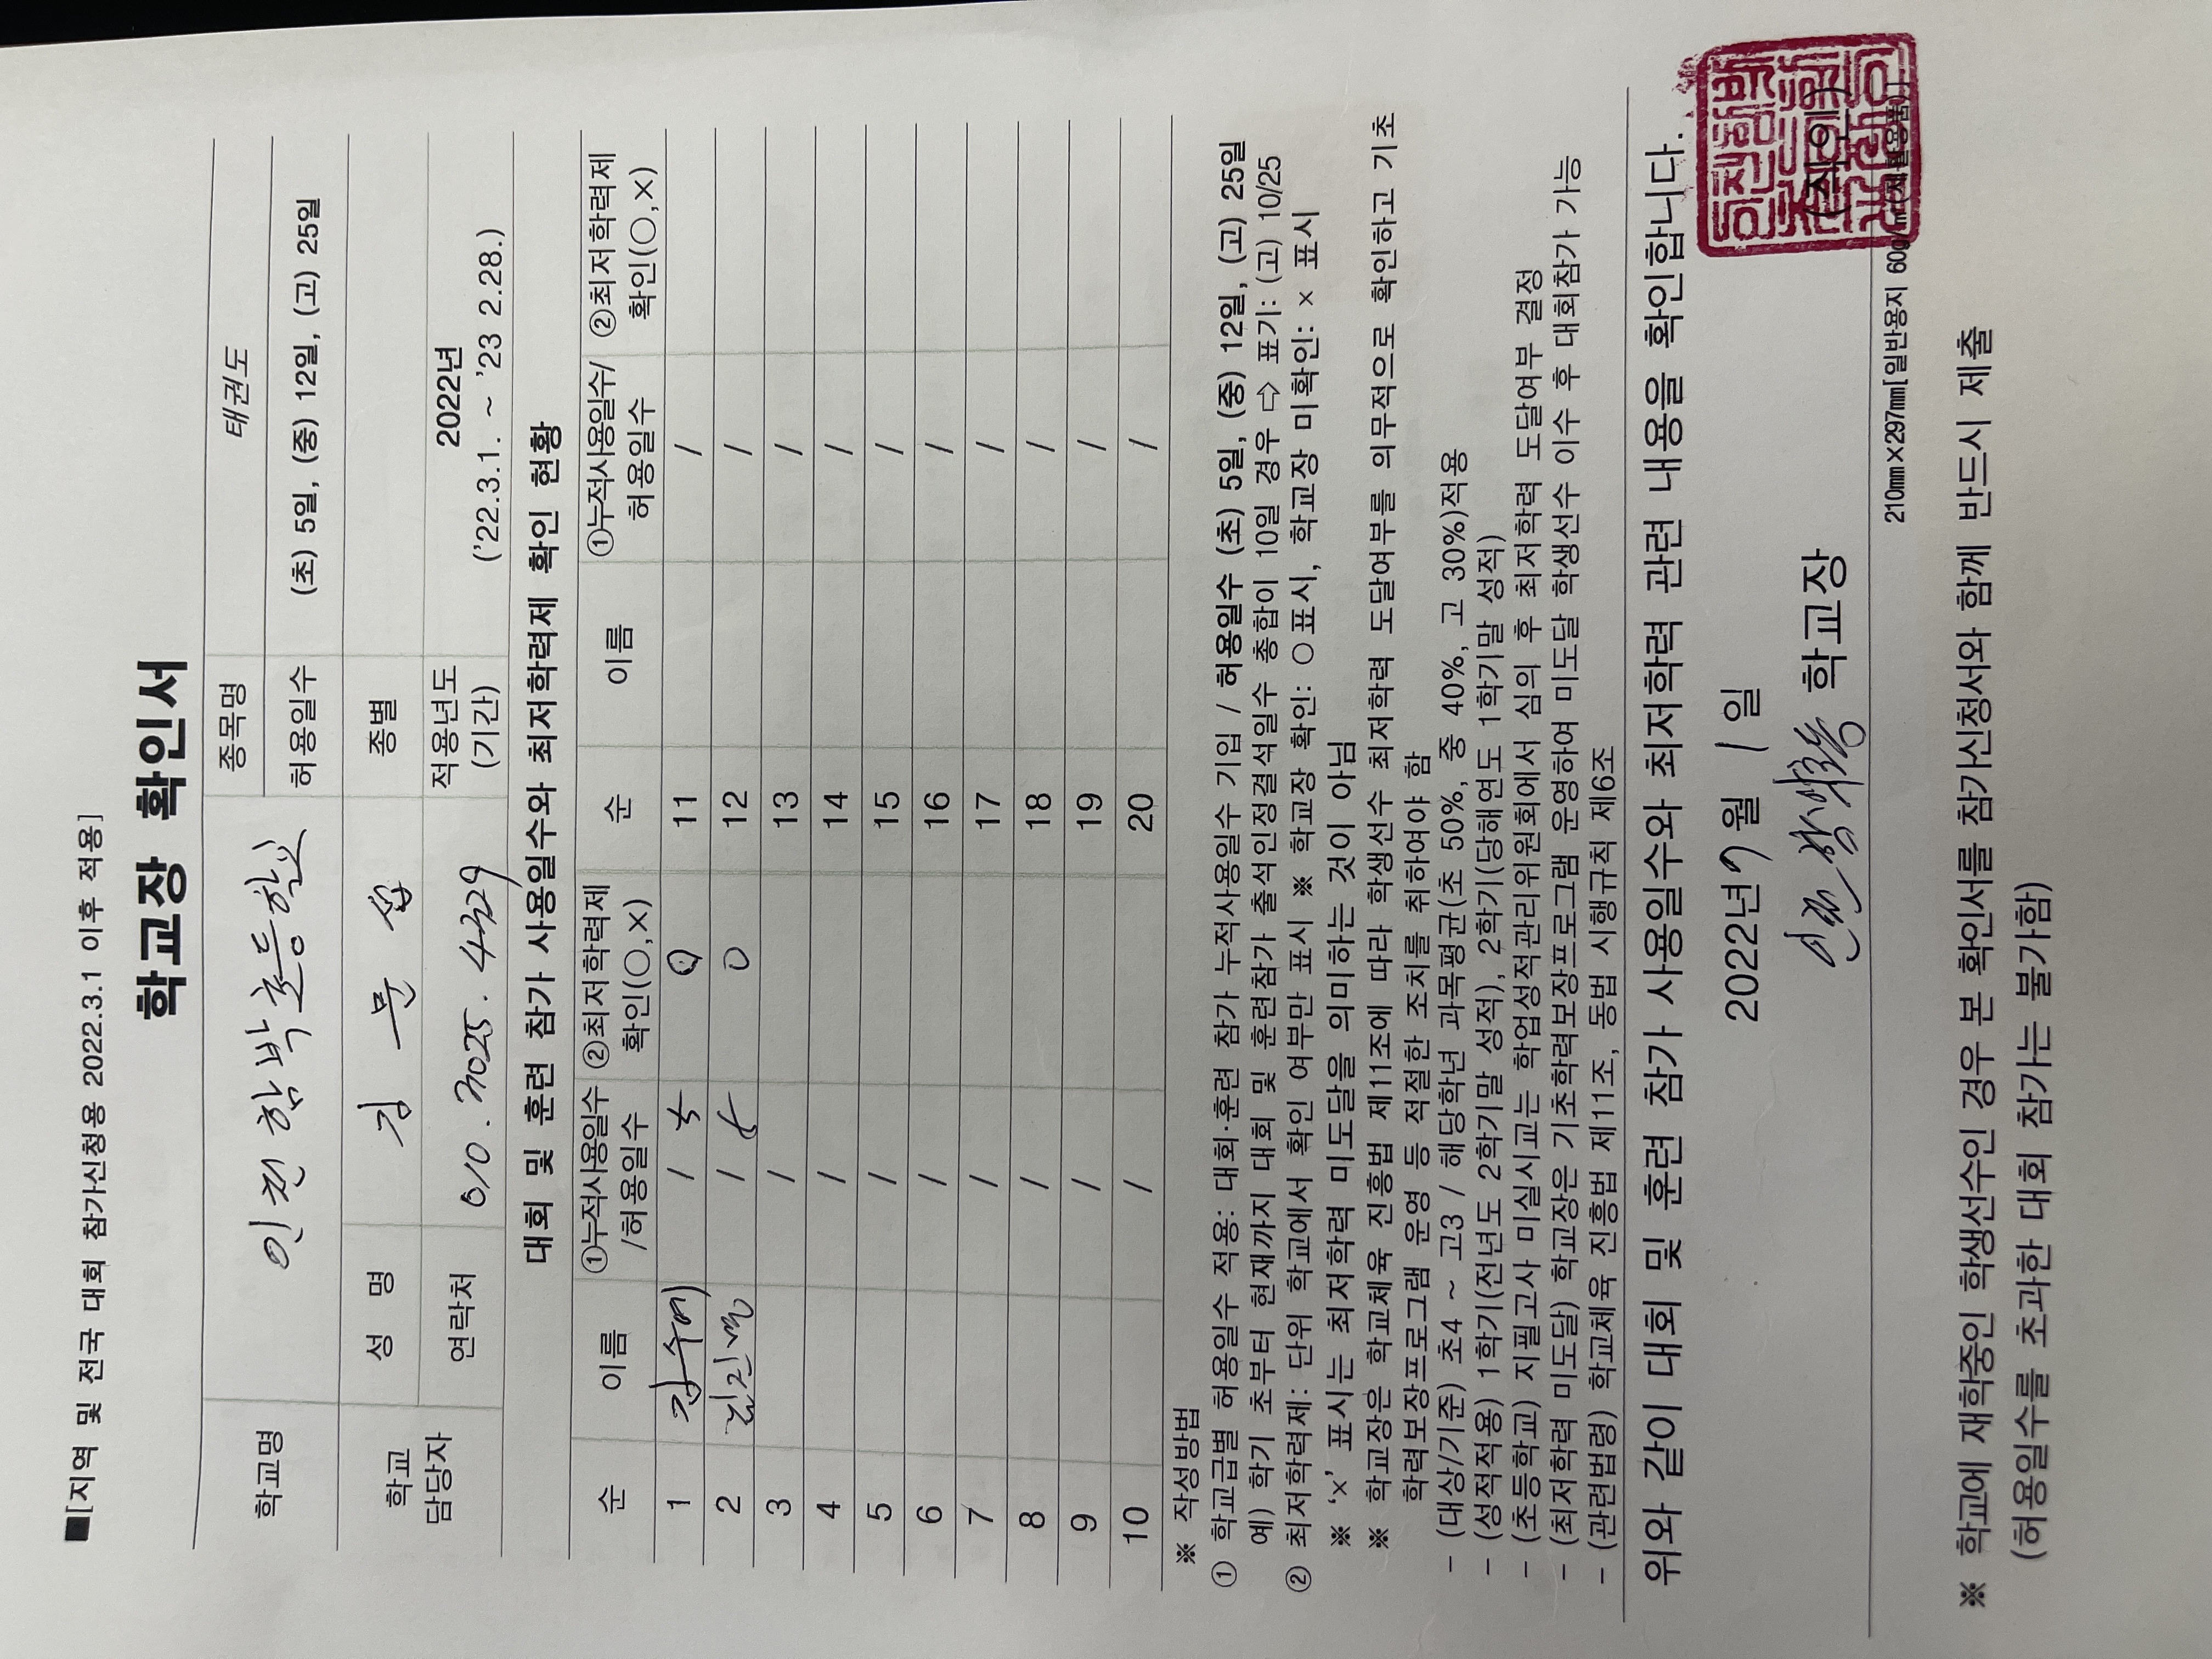 ■[지역 및 전국 대회 참가신청용 2022.3.1 이후 적용]
학교장 확인서
학교명 인천함박초등학교 종목명 태권도
허용일수 (초) 5일, (중) 12일, (고) 25일
학교 담당자 성 명 김 문 섭 종별
연락처 010. 3025. 4329 적용년도 (기간) 2022년 ('22.3.1. ~ '23 2.28.)
대회 및 훈련 참가 사용일수와 최저학력제 확인 현황
순 이름 ①누적사용일수 /허용일수 ②최저학력제 확인(○,×) 순 이름 ①누적사용일수/ 허용일수 ②최저학력제 확인(○,×)
1 / 5 ○ 11 /
2 / 5 ○ 12 /
3 / 13 /
4 / 14 /
5 / 15 /
6 / 16 /
7 / 17 /
8 / 18 /
9 / 19 /
10 / 20 /
※ 작성방법
① 학교급별 허용일수 적용: 대회·훈련 참가 누적사용일수 기입 / 허용일수 (초) 5일, (중) 12일, (고) 25일
예) 학기 초부터 현재까지 대회 및 훈련참가 출석인정결석일수 총합이 10일 경우 ⇨ 표기: (고) 10/25
② 최저학력제: 단위 학교에서 확인 여부만 표시 ※ 학교장 확인: ○표시, 학교장 미확인: × 표시
※ '×' 표시는 최저학력 미도달을 의미하는 것이 아님
※ 학교장은 학교체육 진흥법 제11조에 따라 학생선수 최저학력 도달여부를 의무적으로 확인하고 기초
학력보장프로그램 운영 등 적절한 조치를 취하여야 함
- (대상/기준) 초4 ~ 고3 / 해당학년 과목평균(초 50%, 중 40%, 고 30%)적용
- (성적적용) 1학기(전년도 2학기말 성적), 2학기(당해연도 1학기말 성적)
- (초등학교) 지필고사 미실시교는 학업성적관리위원회에서 심의 후 최저학력 도달여부 결정
- (최저학력 미도달) 학교장은 기초학력보장프로그램 운영하여 미도달 학생선수 이수 후 대회참가 가능
- (관련법령) 학교체육 진흥법 제11조, 동법 시행규칙 제6조
위와 같이 대회 및 훈련 참가 사용일수와 최저학력 관련 내용을 확인합니다.
2022년 7월 1일
학교장 (직인)
210㎜×297㎜[일반용지 60g/㎡(재활용품)]
※ 학교에 재학중인 학생선수인 경우 본 확인서를 참가신청서와 함께 반드시 제출
(허용일수를 초과한 대회 참가는 불가함)